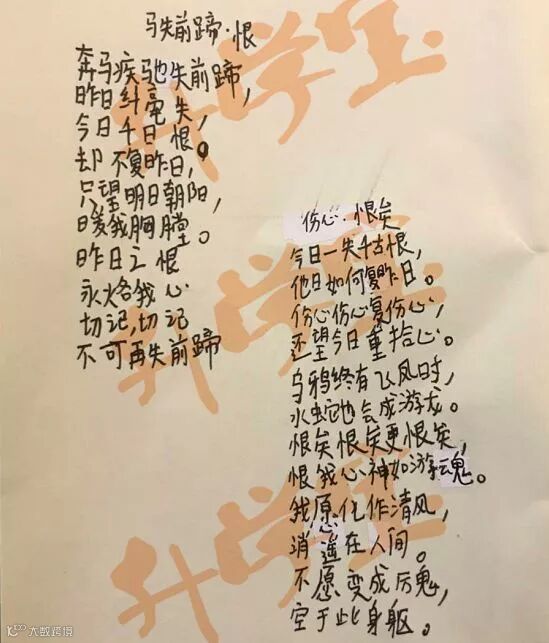 马失前蹄·恨
奔马疾驰失前蹄，
昨日纤毫失，
今日千日恨，
却不复昨日。
只望明日朝阳，
暖我胸膛。
昨日之恨
永烙我心
切记，切记
不可再失前蹄
伤心·恨矣
今日一失千古恨，
他日如何复昨日。
伤心伤心复伤心，
还望今日重拾心。
乌鸦终有飞凤时，
水蛇也会成游龙。
恨矣恨矣更恨矣，
恨我心神如游魂。
我愿化作清风，
逍遥在人间。
不愿变成厉鬼，
空于此身躯。
升学宝
升学宝
升学宝
大数跨境